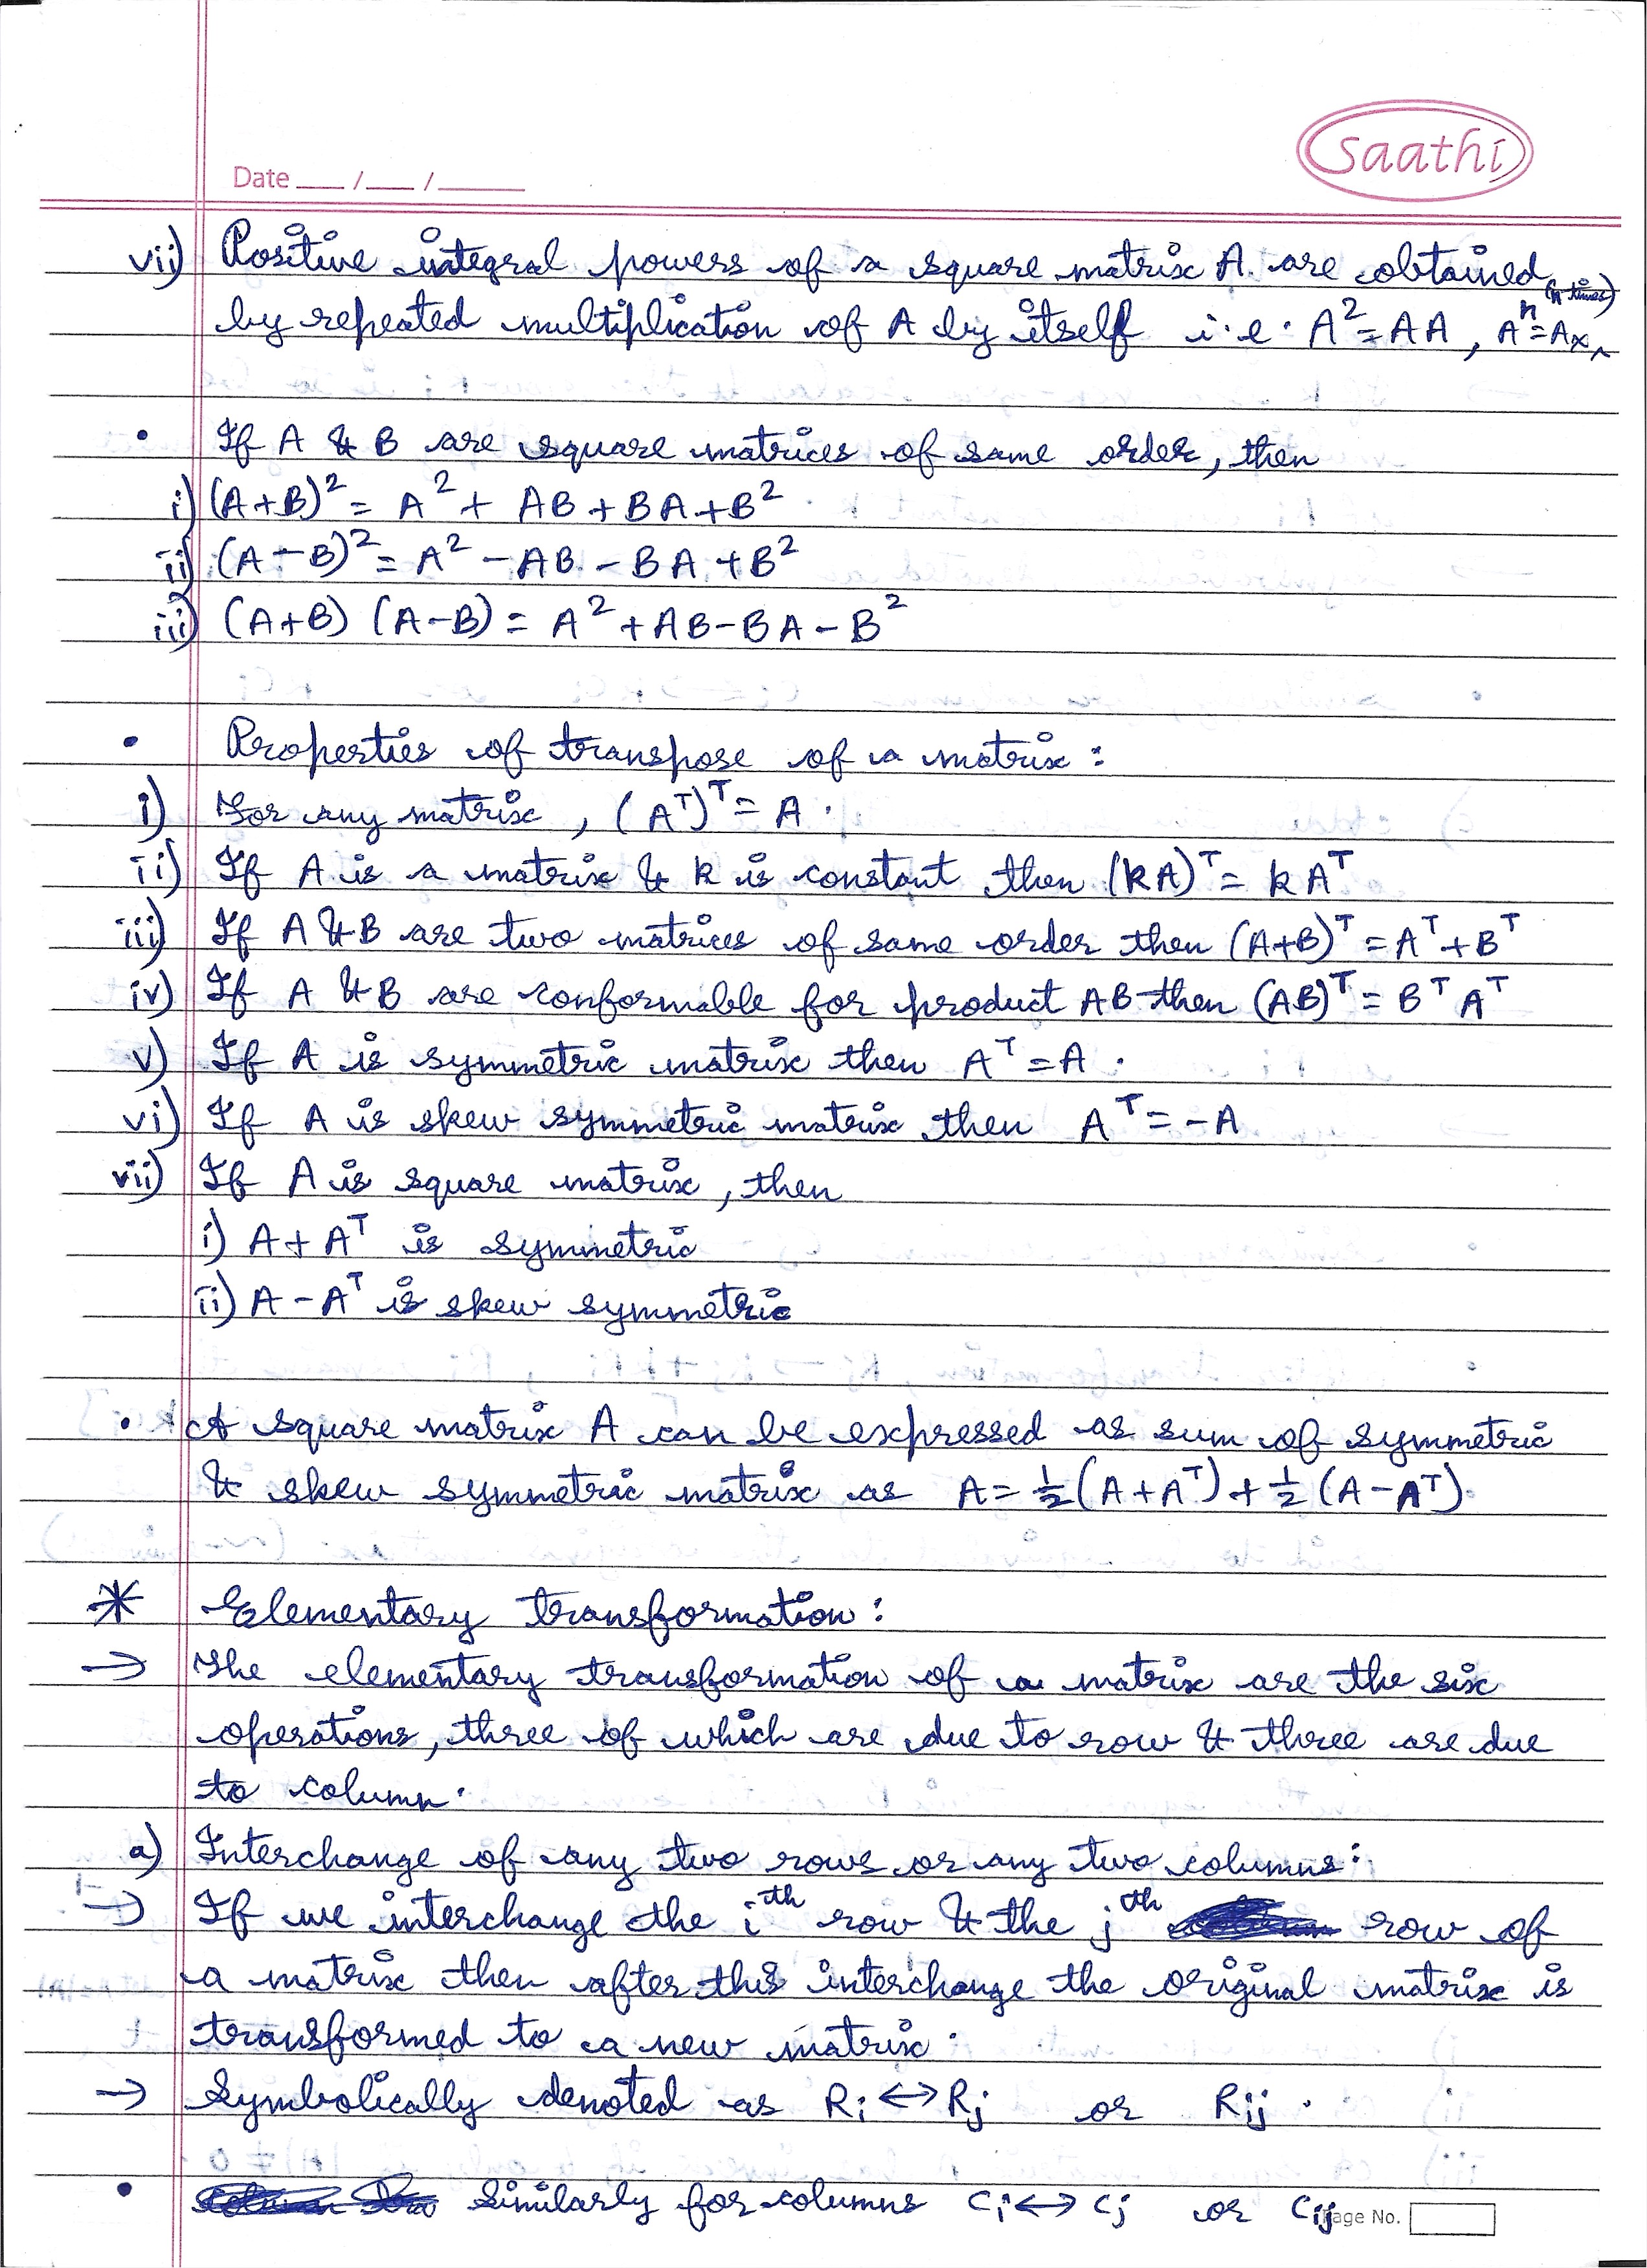 saathi
Date ___ /___ /______
vii) Positive integral powers of a square matrix A. are obtained
by repeated multiplication of A by itself i.e. A² = AA, Aⁿ = A× (n times)
• If A & B are square matrices of same order, then
i) (A+B)² = A² + AB + BA + B²
ii) (A-B)² = A² - AB - BA + B²
iii) (A+B) (A-B) = A² + AB - BA - B²
• Properties of transpose of a matrix :
i) For any matrix, (Aᵀ)ᵀ = A.
ii) If A is a matrix & k is constant then (kA)ᵀ = kAᵀ
iii) If A & B are two matrices of same order then (A+B)ᵀ = Aᵀ + Bᵀ
iv) If A & B are conformable for product AB then (AB)ᵀ = Bᵀ Aᵀ
v) If A is symmetric matrix then Aᵀ = A.
vi) If A is skew symmetric matrix then Aᵀ = -A
vii) If A is square matrix, then
i) A + Aᵀ is symmetric
ii) A - Aᵀ is skew symmetric
• A square matrix A can be expressed as sum of symmetric
& skew symmetric matrix as A = ½(A+Aᵀ) + ½(A-Aᵀ).
* Elementary transformation :
→ The elementary transformation of a matrix are the six
operations, three of which are due to row & three are due
to column.
a) Interchange of any two rows or any two columns :
→ If we interchange the iᵗʰ row & the jᵗʰ row of
a matrix then after this interchange the original matrix is
transformed to a new matrix.
→ Symbolically denoted as Ri ↔ Rj or Rij.
• Similarly for columns Ci ↔ Cj or Cij
Page No.